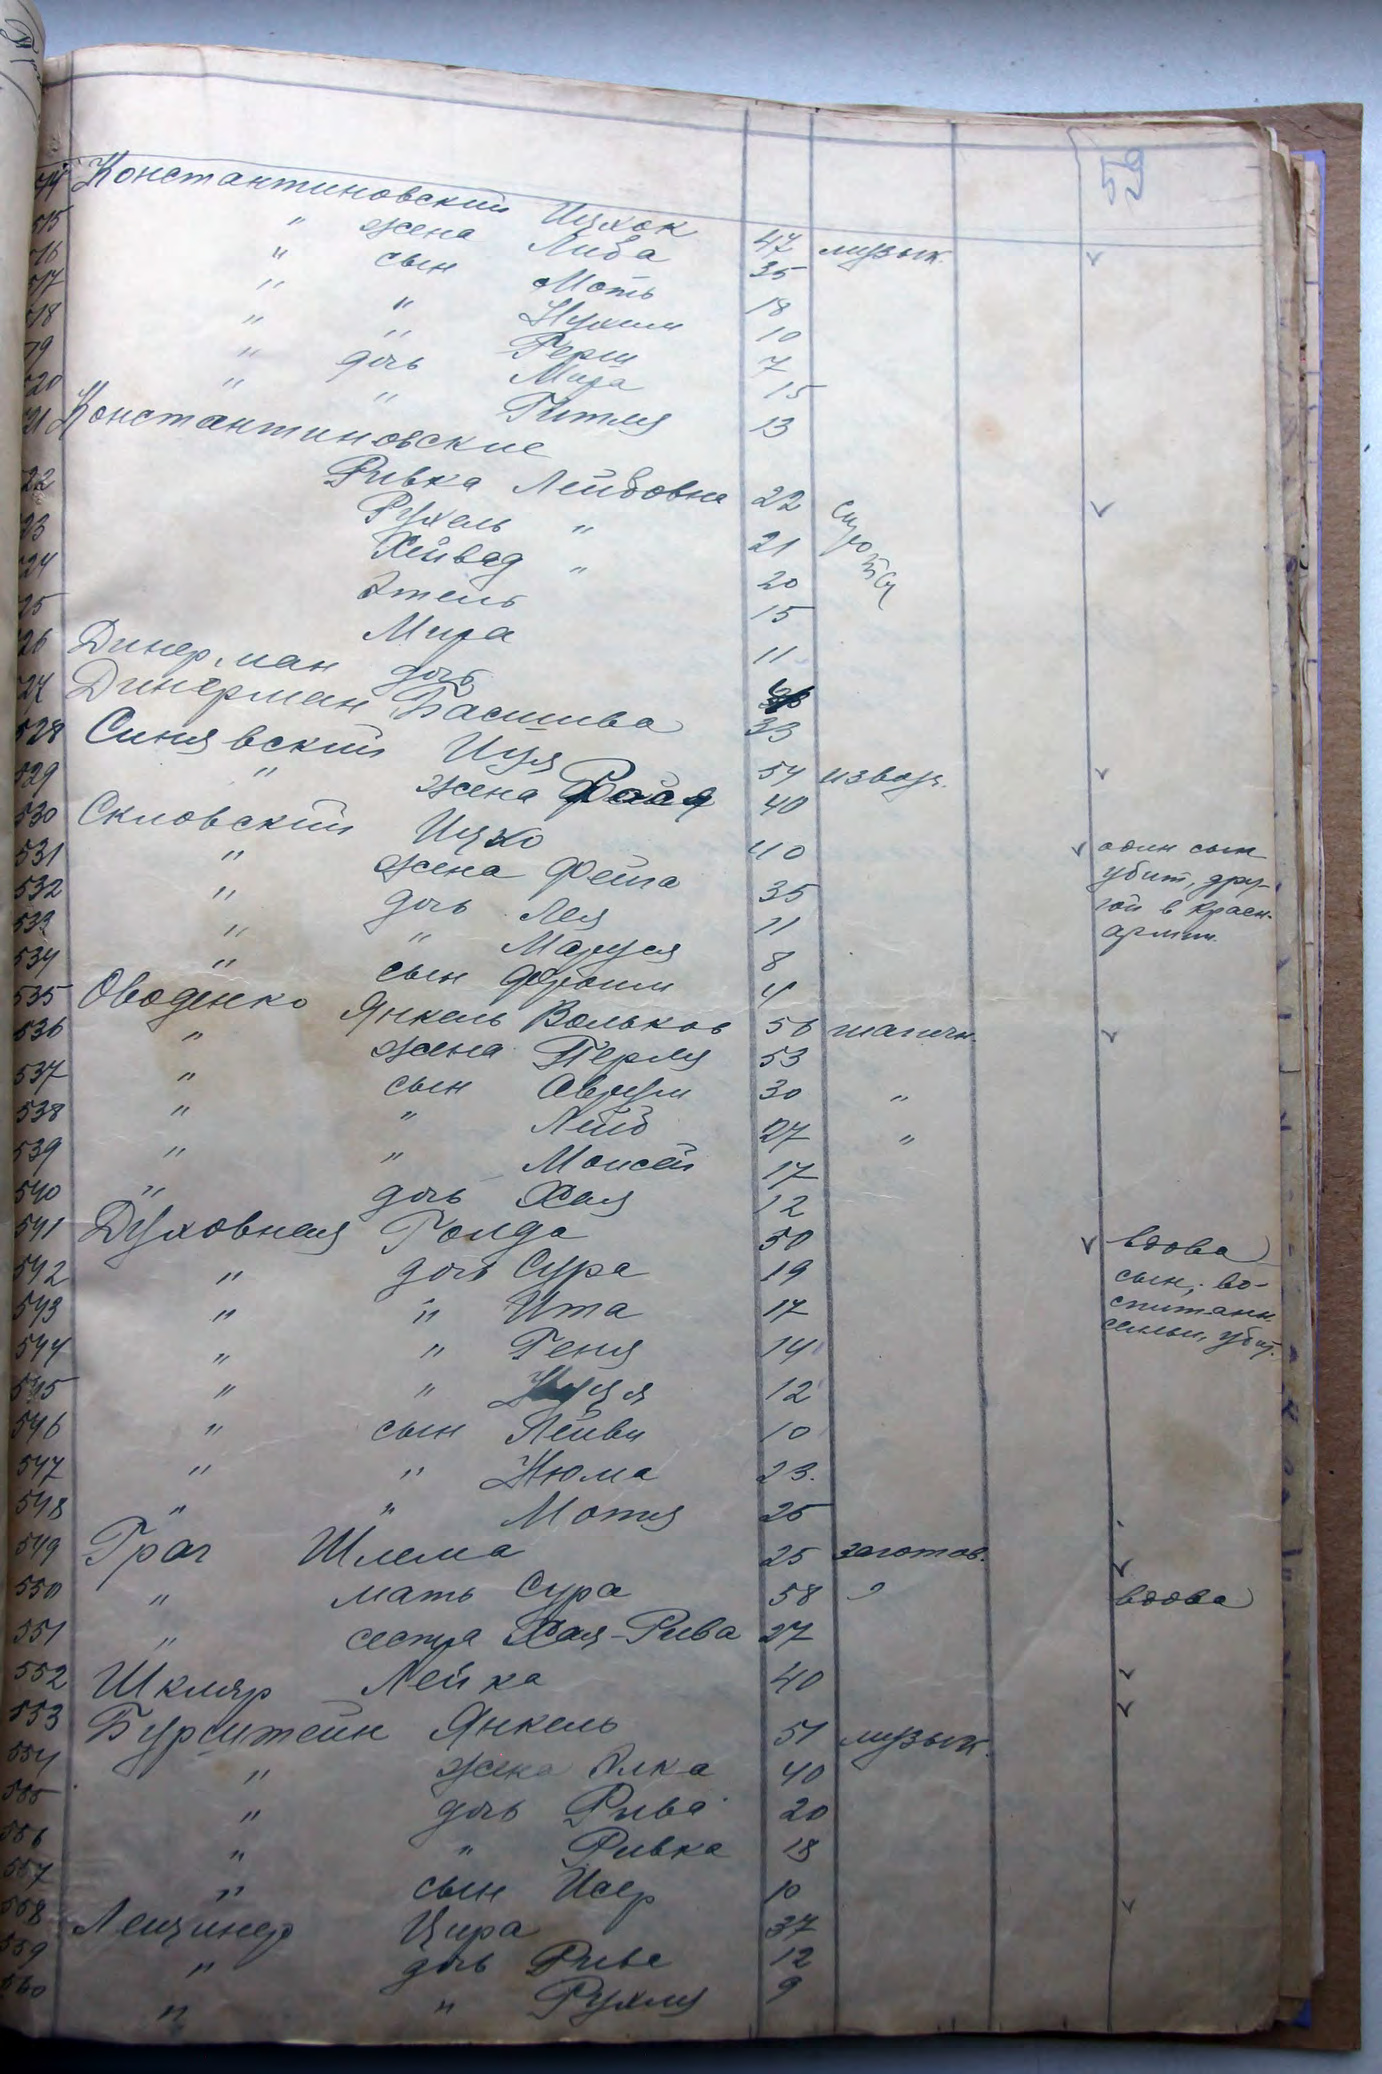 59
514 Константиновский Ицхок 47 музык.
515 " жена Либа 35
516 " сын Моть 18
517 " " Нухим 10
518 " " Герш 7
519 " дочь Мира 15
520 " " Гитля 13
521 Константиновские
Ривка Лейбовна 22 сироты
522 Рухель " 21
523 Хейвед " 20
524 Этель 15
525 Мира 11
526 Динерман дочь
527 Динерман Басшива 33
528 Синявский Иця 54 извозч.
529 " жена 40
530 Скловский Ицко 40 один сын
531 " жена Фейга 35 убит, дру-
532 " дочь Лея 11 гой в красн.
533 " " Маруся 8 армии.
534 " сын Фроим 4
535 Оводенко Янкель Вольков 56 шапочн.
536 " жена Перля 53
537 " сын Аврум 30 "
538 " " Лейб 27 "
539 " " Моисей 17
540 " дочь Хая 12
541 Духовная Голда 50 вдова
542 " дочь Сура 19 сын, во-
543 " " Ита 17 спитанн.
544 " " Геня 14 семьи, убит.
545 " " 12
546 " сын Лейви 10
547 " " Нюма 23.
548 " " Мотя 25
549 Грач Шлема 25 заготов.
550 " мать Сура 58 " вдова
551 " сестра Хая-Рива 27
552 Шкляр Лейка 40
553 Бурштейн Янкель 51 музык.
554 " жена Элка 40
555 " дочь Рива 20
556 " " Ривка 18
557 " сын Исер 10
558 Лещинер Цира 37
559 " дочь Рива 12
560 " " Рухля 9